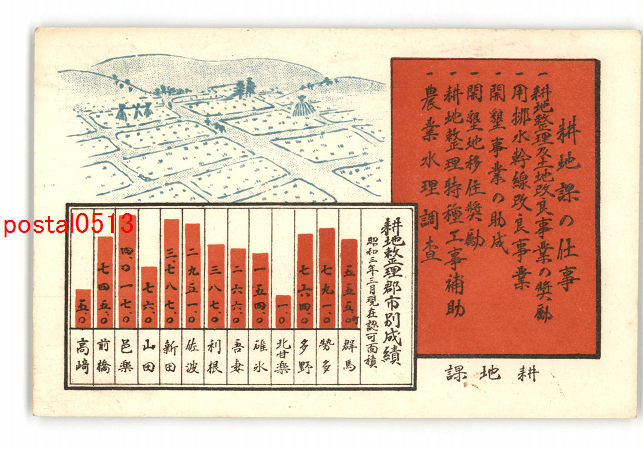 耕地課の仕事
一耕地整理及土地改良事業の奨勵
一用排水幹線改良事業
一開墾事業の助成
一開墾地移住奨勵
一耕地整理特種工事補助
一農業水理調査
耕地課
耕地整理郡市別成績
昭和三年三月現在認可面積
群馬 五五五、〇町
勢多 七九一、〇
多野 七六四、〇
北甘楽 一〇、〇
碓氷 一五四、〇
吾妻 二六六、〇
利根 三八七、〇
佐波 二、九五一、〇
新田 三、七八七、〇
山田 七六、〇
邑楽 四、〇一七、〇
前橋 七四五、〇
高崎 五、〇
postal0513